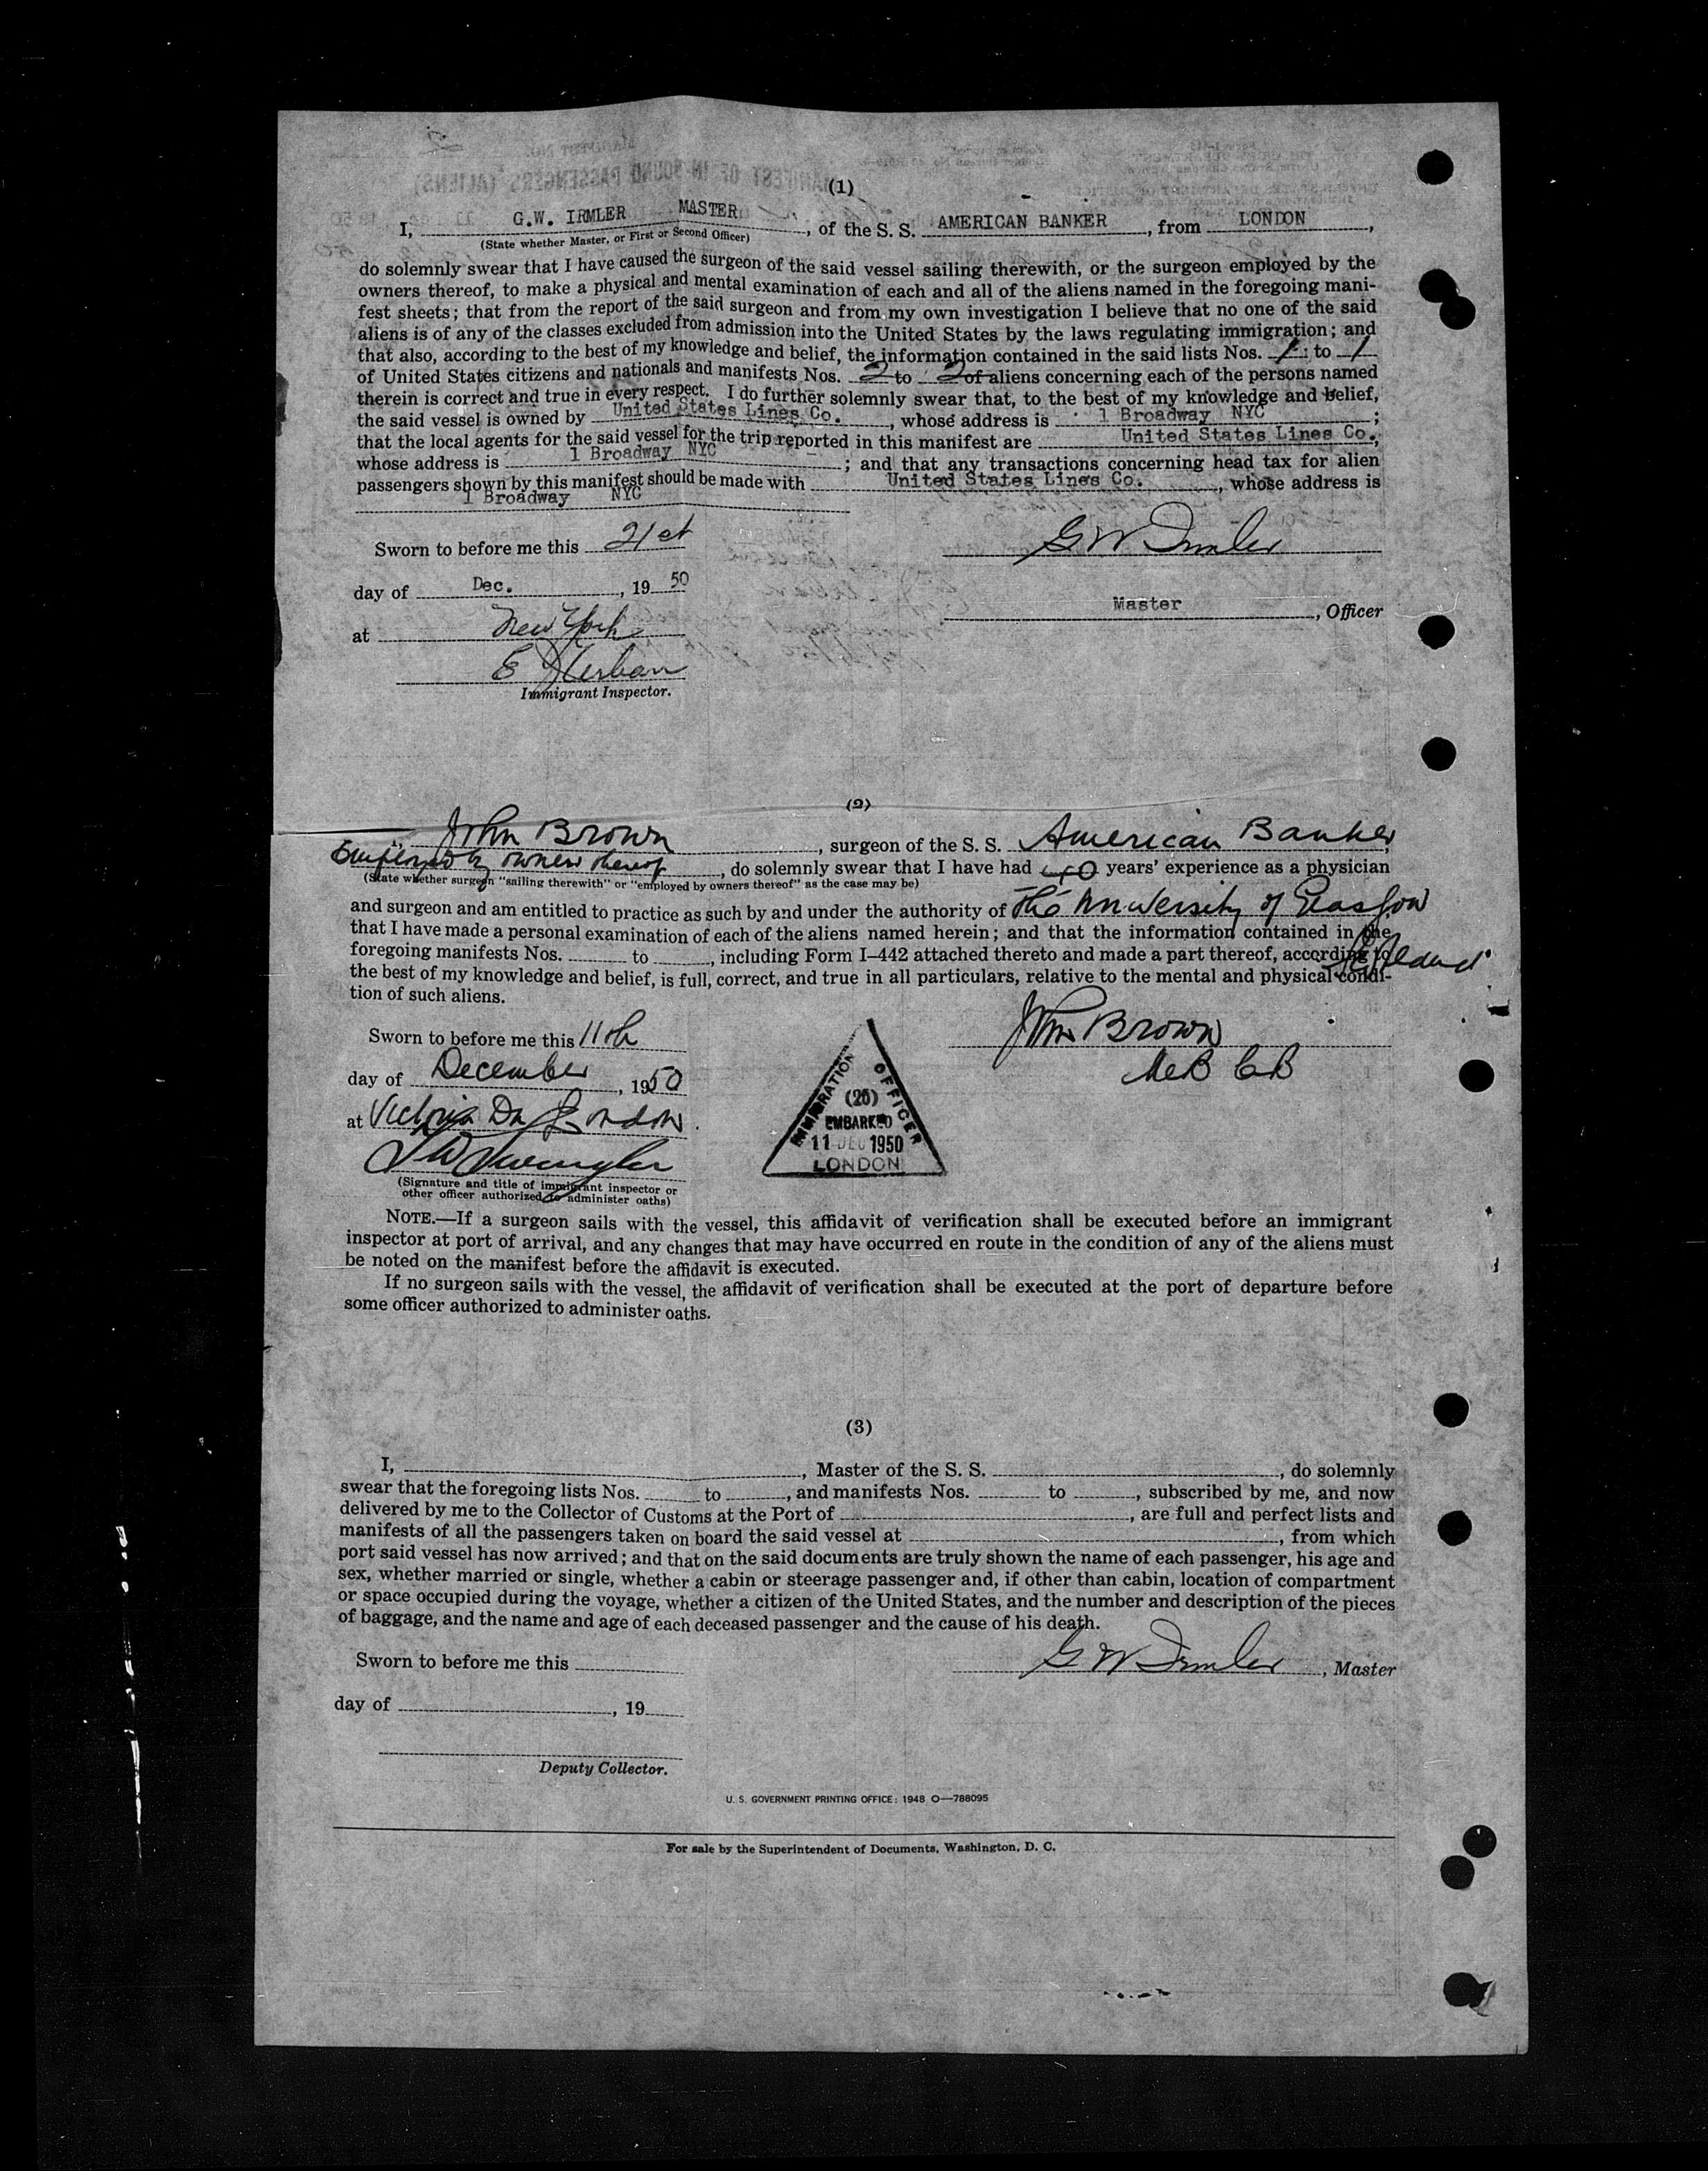 (1)
I, G.W. IRMLER MASTER, of the S. S. AMERICAN BANKER, from LONDON,
(State whether Master, or First or Second Officer)
do solemnly swear that I have caused the surgeon of the said vessel sailing therewith, or the surgeon employed by the
owners thereof, to make a physical and mental examination of each and all of the aliens named in the foregoing mani-
fest sheets; that from the report of the said surgeon and from my own investigation I believe that no one of the said
aliens is of any of the classes excluded from admission into the United States by the laws regulating immigration; and
that also, according to the best of my knowledge and belief, the information contained in the said lists Nos. 1 to 1
of United States citizens and nationals and manifests Nos. 2 to 2 of aliens concerning each of the persons named
therein is correct and true in every respect. I do further solemnly swear that, to the best of my knowledge and belief,
the said vessel is owned by United States Lines Co., whose address is 1 Broadway NYC;
that the local agents for the said vessel for the trip reported in this manifest are United States Lines Co.,
whose address is 1 Broadway NYC; and that any transactions concerning head tax for alien
passengers shown by this manifest should be made with United States Lines Co., whose address is
1 Broadway NYC
Sworn to before me this 21st
G W Irmler
day of Dec., 19 50
Master, Officer
at New York
Immigrant Inspector.
(2)
John Brown, surgeon of the S. S. American Banker,
Employed by owners thereof, do solemnly swear that I have had 40 years' experience as a physician
(State whether surgeon "sailing therewith" or "employed by owners thereof" as the case may be)
and surgeon and am entitled to practice as such by and under the authority of The University of Glasgow
that I have made a personal examination of each of the aliens named herein; and that the information contained in the
Scotland
foregoing manifests Nos. to , including Form I-442 attached thereto and made a part thereof, according to
the best of my knowledge and belief, is full, correct, and true in all particulars, relative to the mental and physical condi-
tion of such aliens.
Sworn to before me this 11th
John Brown
M.B Ch B
day of December, 1950
at Victoria London.
(Signature and title of immigrant inspector or
other officer authorized to administer oaths)
IMMIGRATION OFFICER
(25)
EMBARKED
11 DEC 1950
LONDON
NOTE.—If a surgeon sails with the vessel, this affidavit of verification shall be executed before an immigrant
inspector at port of arrival, and any changes that may have occurred en route in the condition of any of the aliens must
be noted on the manifest before the affidavit is executed.
If no surgeon sails with the vessel, the affidavit of verification shall be executed at the port of departure before
some officer authorized to administer oaths.
(3)
I, , Master of the S. S. , do solemnly
swear that the foregoing lists Nos. to , and manifests Nos. to , subscribed by me, and now
delivered by me to the Collector of Customs at the Port of , are full and perfect lists and
manifests of all the passengers taken on board the said vessel at , from which
port said vessel has now arrived; and that on the said documents are truly shown the name of each passenger, his age and
sex, whether married or single, whether a cabin or steerage passenger and, if other than cabin, location of compartment
or space occupied during the voyage, whether a citizen of the United States, and the number and description of the pieces
of baggage, and the name and age of each deceased passenger and the cause of his death.
Sworn to before me this
G W Irmler, Master
day of , 19
Deputy Collector.
U. S. GOVERNMENT PRINTING OFFICE: 1948 O—788095
For sale by the Superintendent of Documents, Washington, D. C.